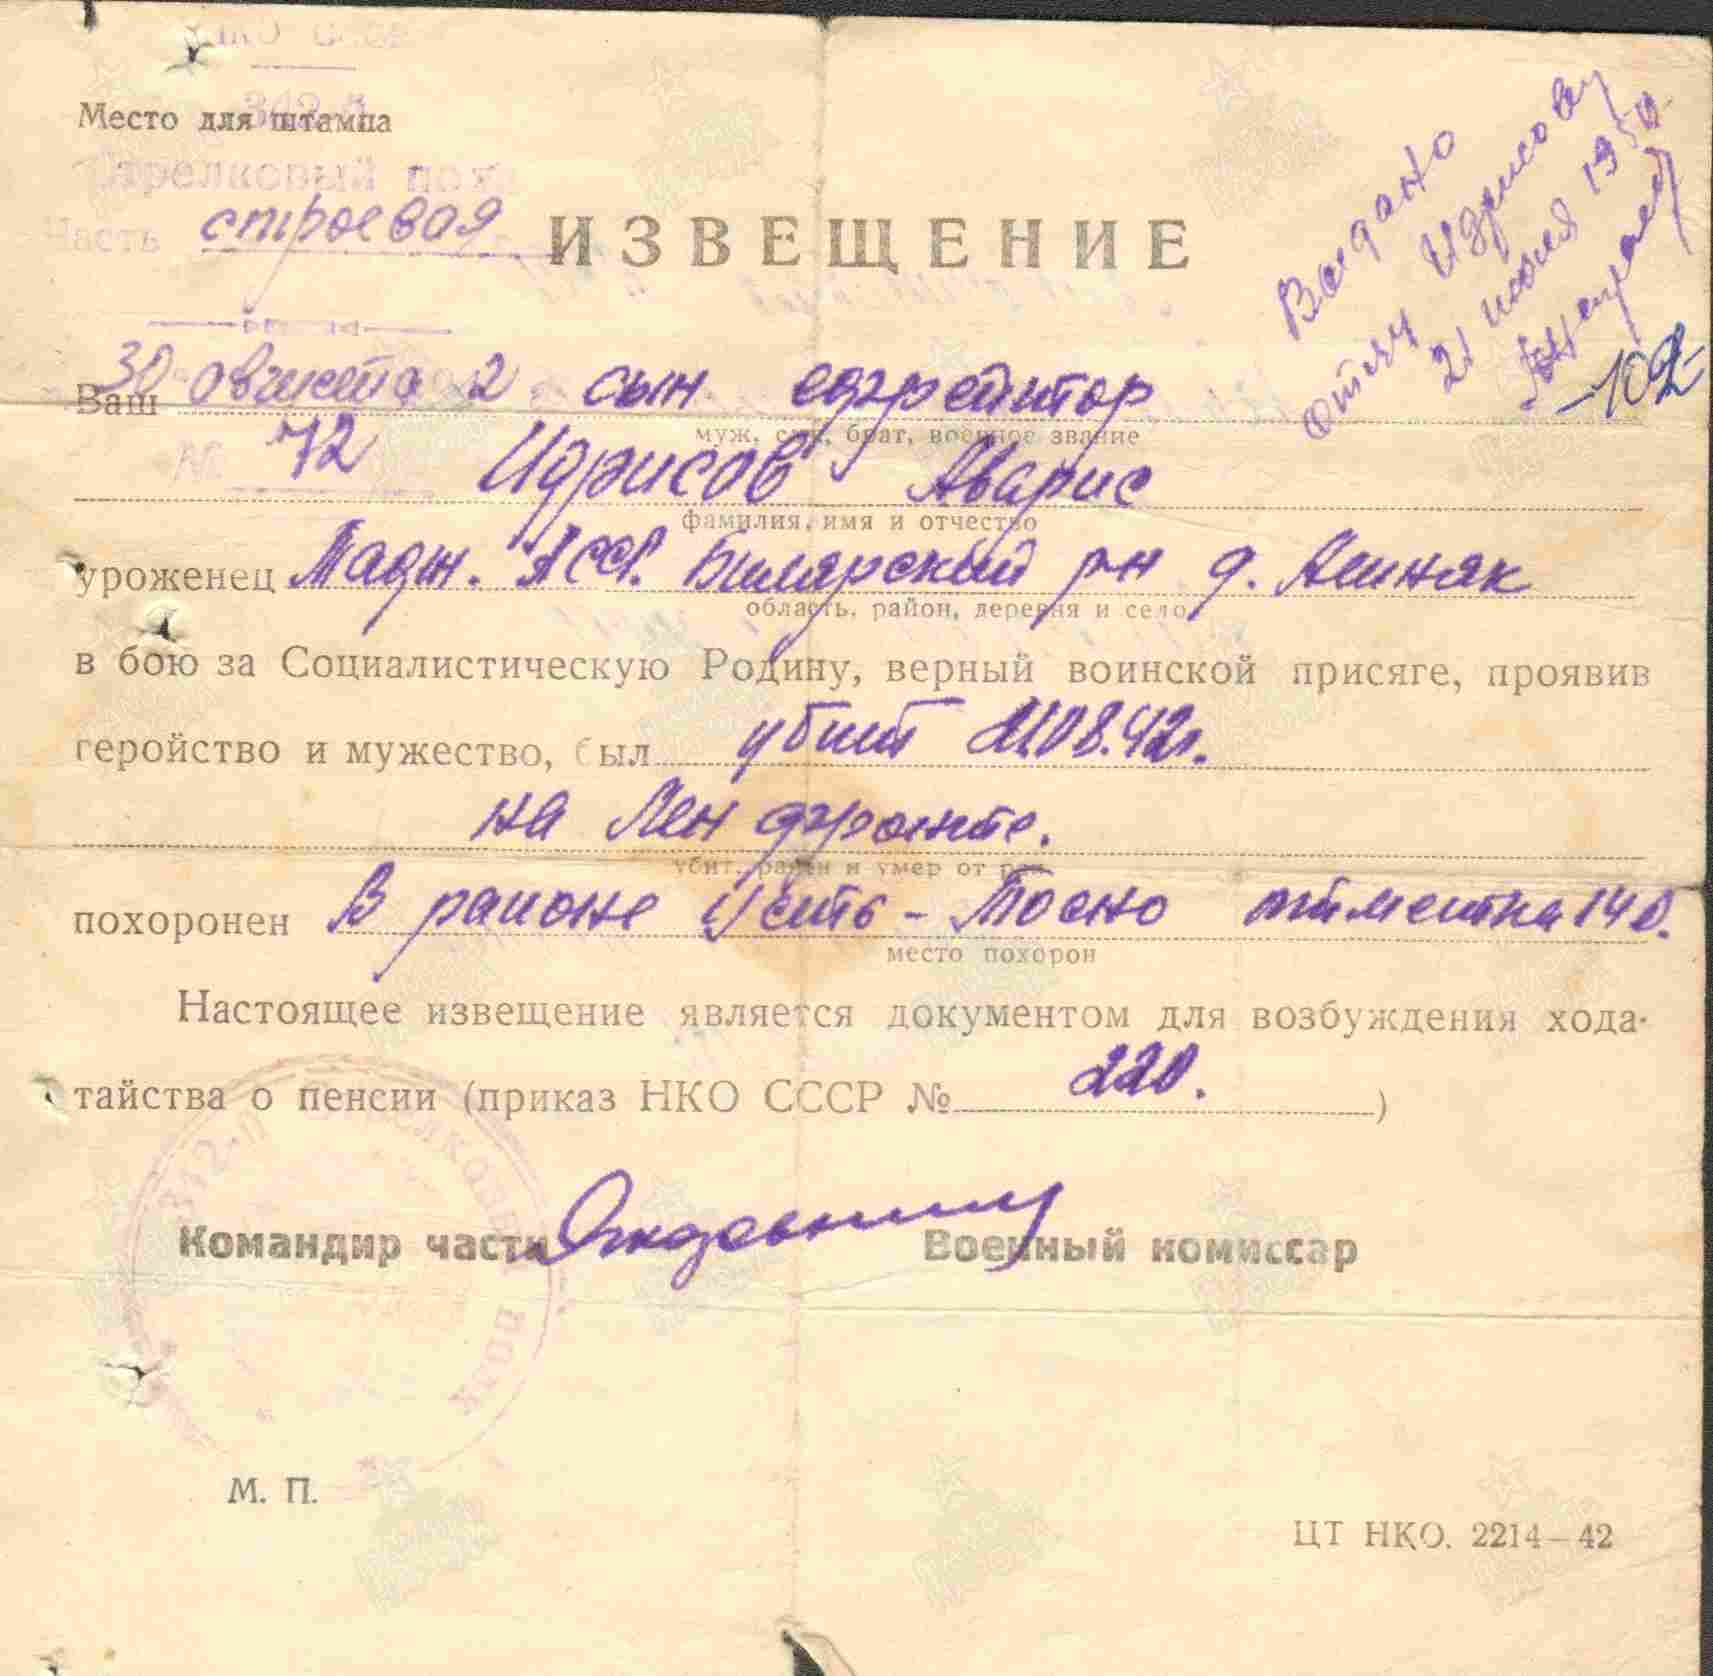 НКО СССР
342-й
Место для штампа
Стрелковый полк
Часть строевая
ИЗВЕЩЕНИЕ
Выдано
отцу Идрисову
21 июля 1950
-102-
30 августа 2
Ваш сын ефрейтор
муж, сын, брат, военное звание
№ 72 Идрисов Аварис
фамилия, имя и отчество
уроженец Тадж. АССР. Билярский р-н д. Ашняк
область, район, деревня и село
в бою за Социалистическую Родину, верный воинской присяге, проявив
геройство и мужество, был убит 21.08.42г.
на Лен фронте.
убит, ранен и умер от ран
похоронен В районе Усть-Тосно отметка 14.0.
место похорон
Настоящее извещение является документом для возбуждения хода-
тайства о пенсии (приказ НКО СССР № 220. )
342-й Стрелковый полк
Командир части Военный комиссар
М. П.
ЦТ НКО. 2214—42